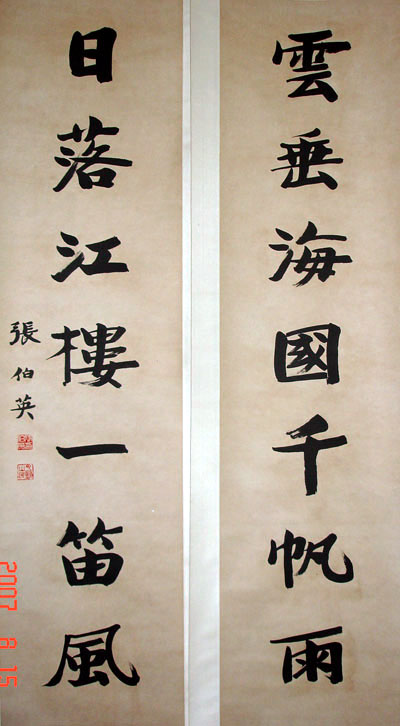 雲垂海國千帆雨
日落江樓一笛風
張伯英
2007 8 15